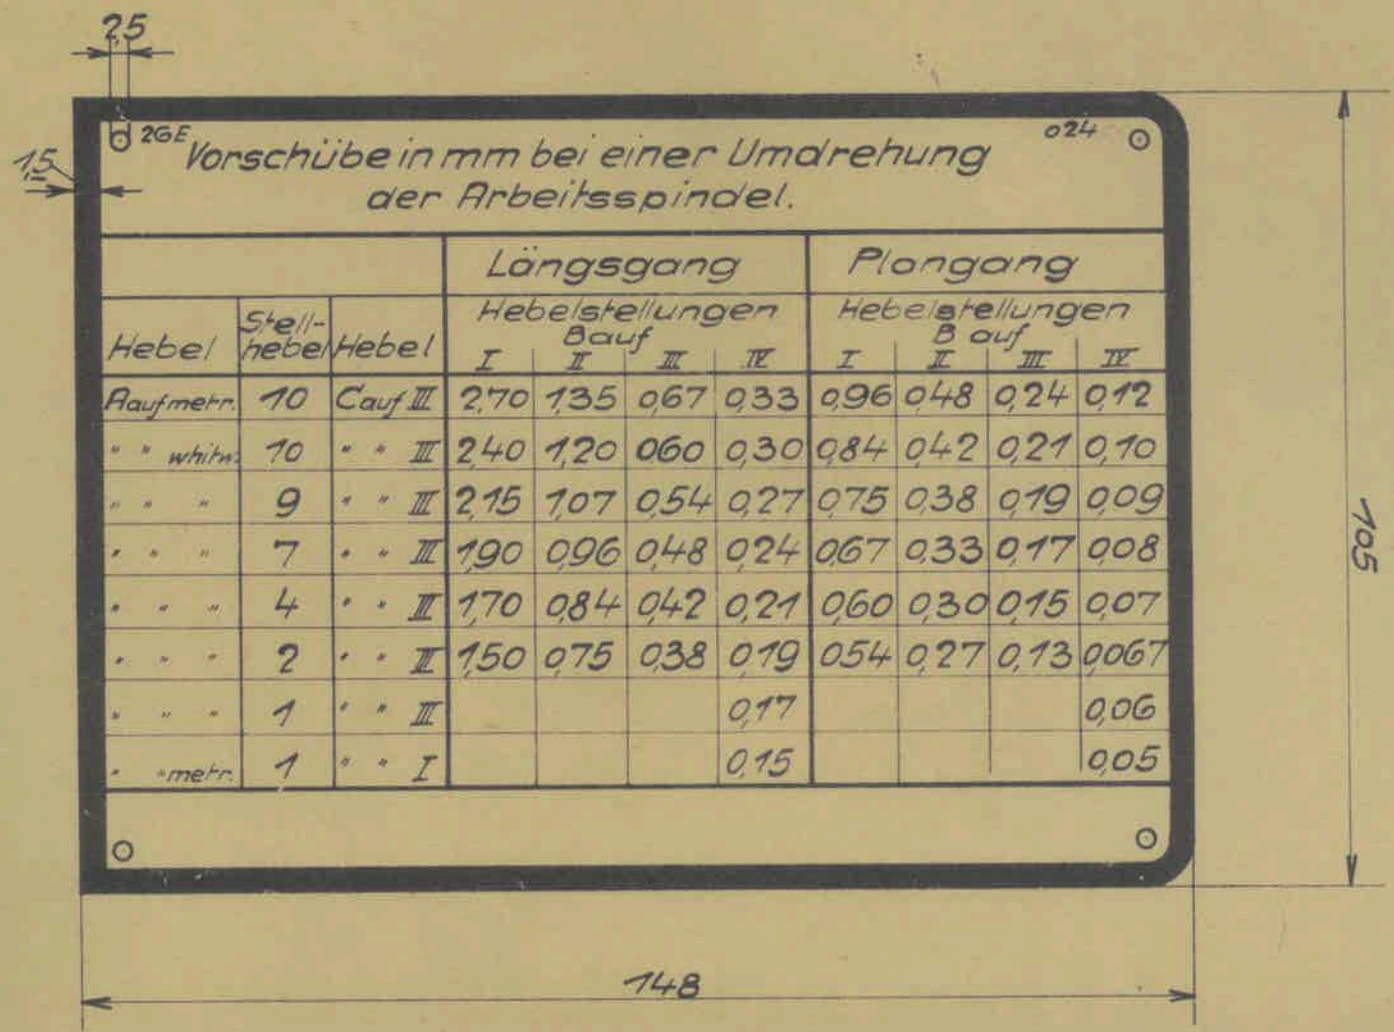 2,5
1,5
2GE
024
Vorschübe in mm bei einer Umdrehung
der Arbeitsspindel.
Längsgang Plangang
Hebel Stell-hebel Hebel Hebelstellungen B auf Hebelstellungen B auf
I II III IV I II III IV
A auf metr. 10 C auf III 2,70 1,35 0,67 0,33 0,96 0,48 0,24 0,12
" " whitw. 10 " " III 2,40 1,20 0,60 0,30 0,84 0,42 0,21 0,10
" " " 9 " " III 2,15 1,07 0,54 0,27 0,75 0,38 0,19 0,09
" " " 7 " " III 1,90 0,96 0,48 0,24 0,67 0,33 0,17 0,08
" " " 4 " " III 1,70 0,84 0,42 0,21 0,60 0,30 0,15 0,07
" " " 2 " " III 1,50 0,75 0,38 0,19 0,54 0,27 0,13 0,067
" " " 1 " " III 0,17 0,06
" " metr. 1 " " I 0,15 0,05
105
148